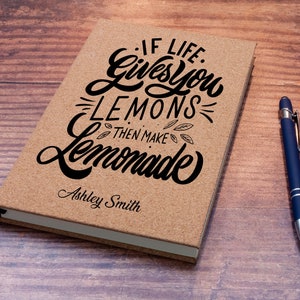 IF LIFE
Gives You
LEMONS
THEN MAKE
Lemonade
Ashley Smith